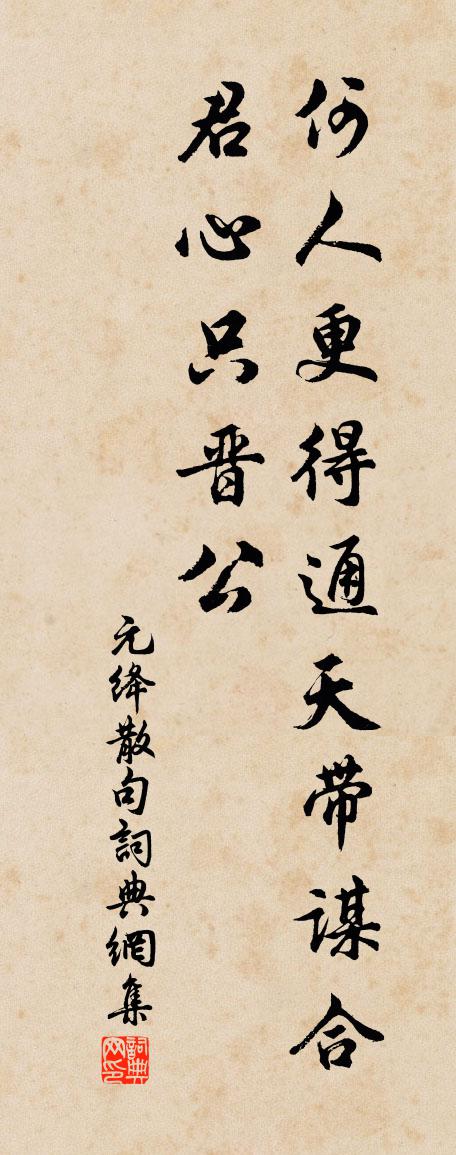 何人更得通天带謀合
君心只晋公
元绛散句詞典網集
詞典网印